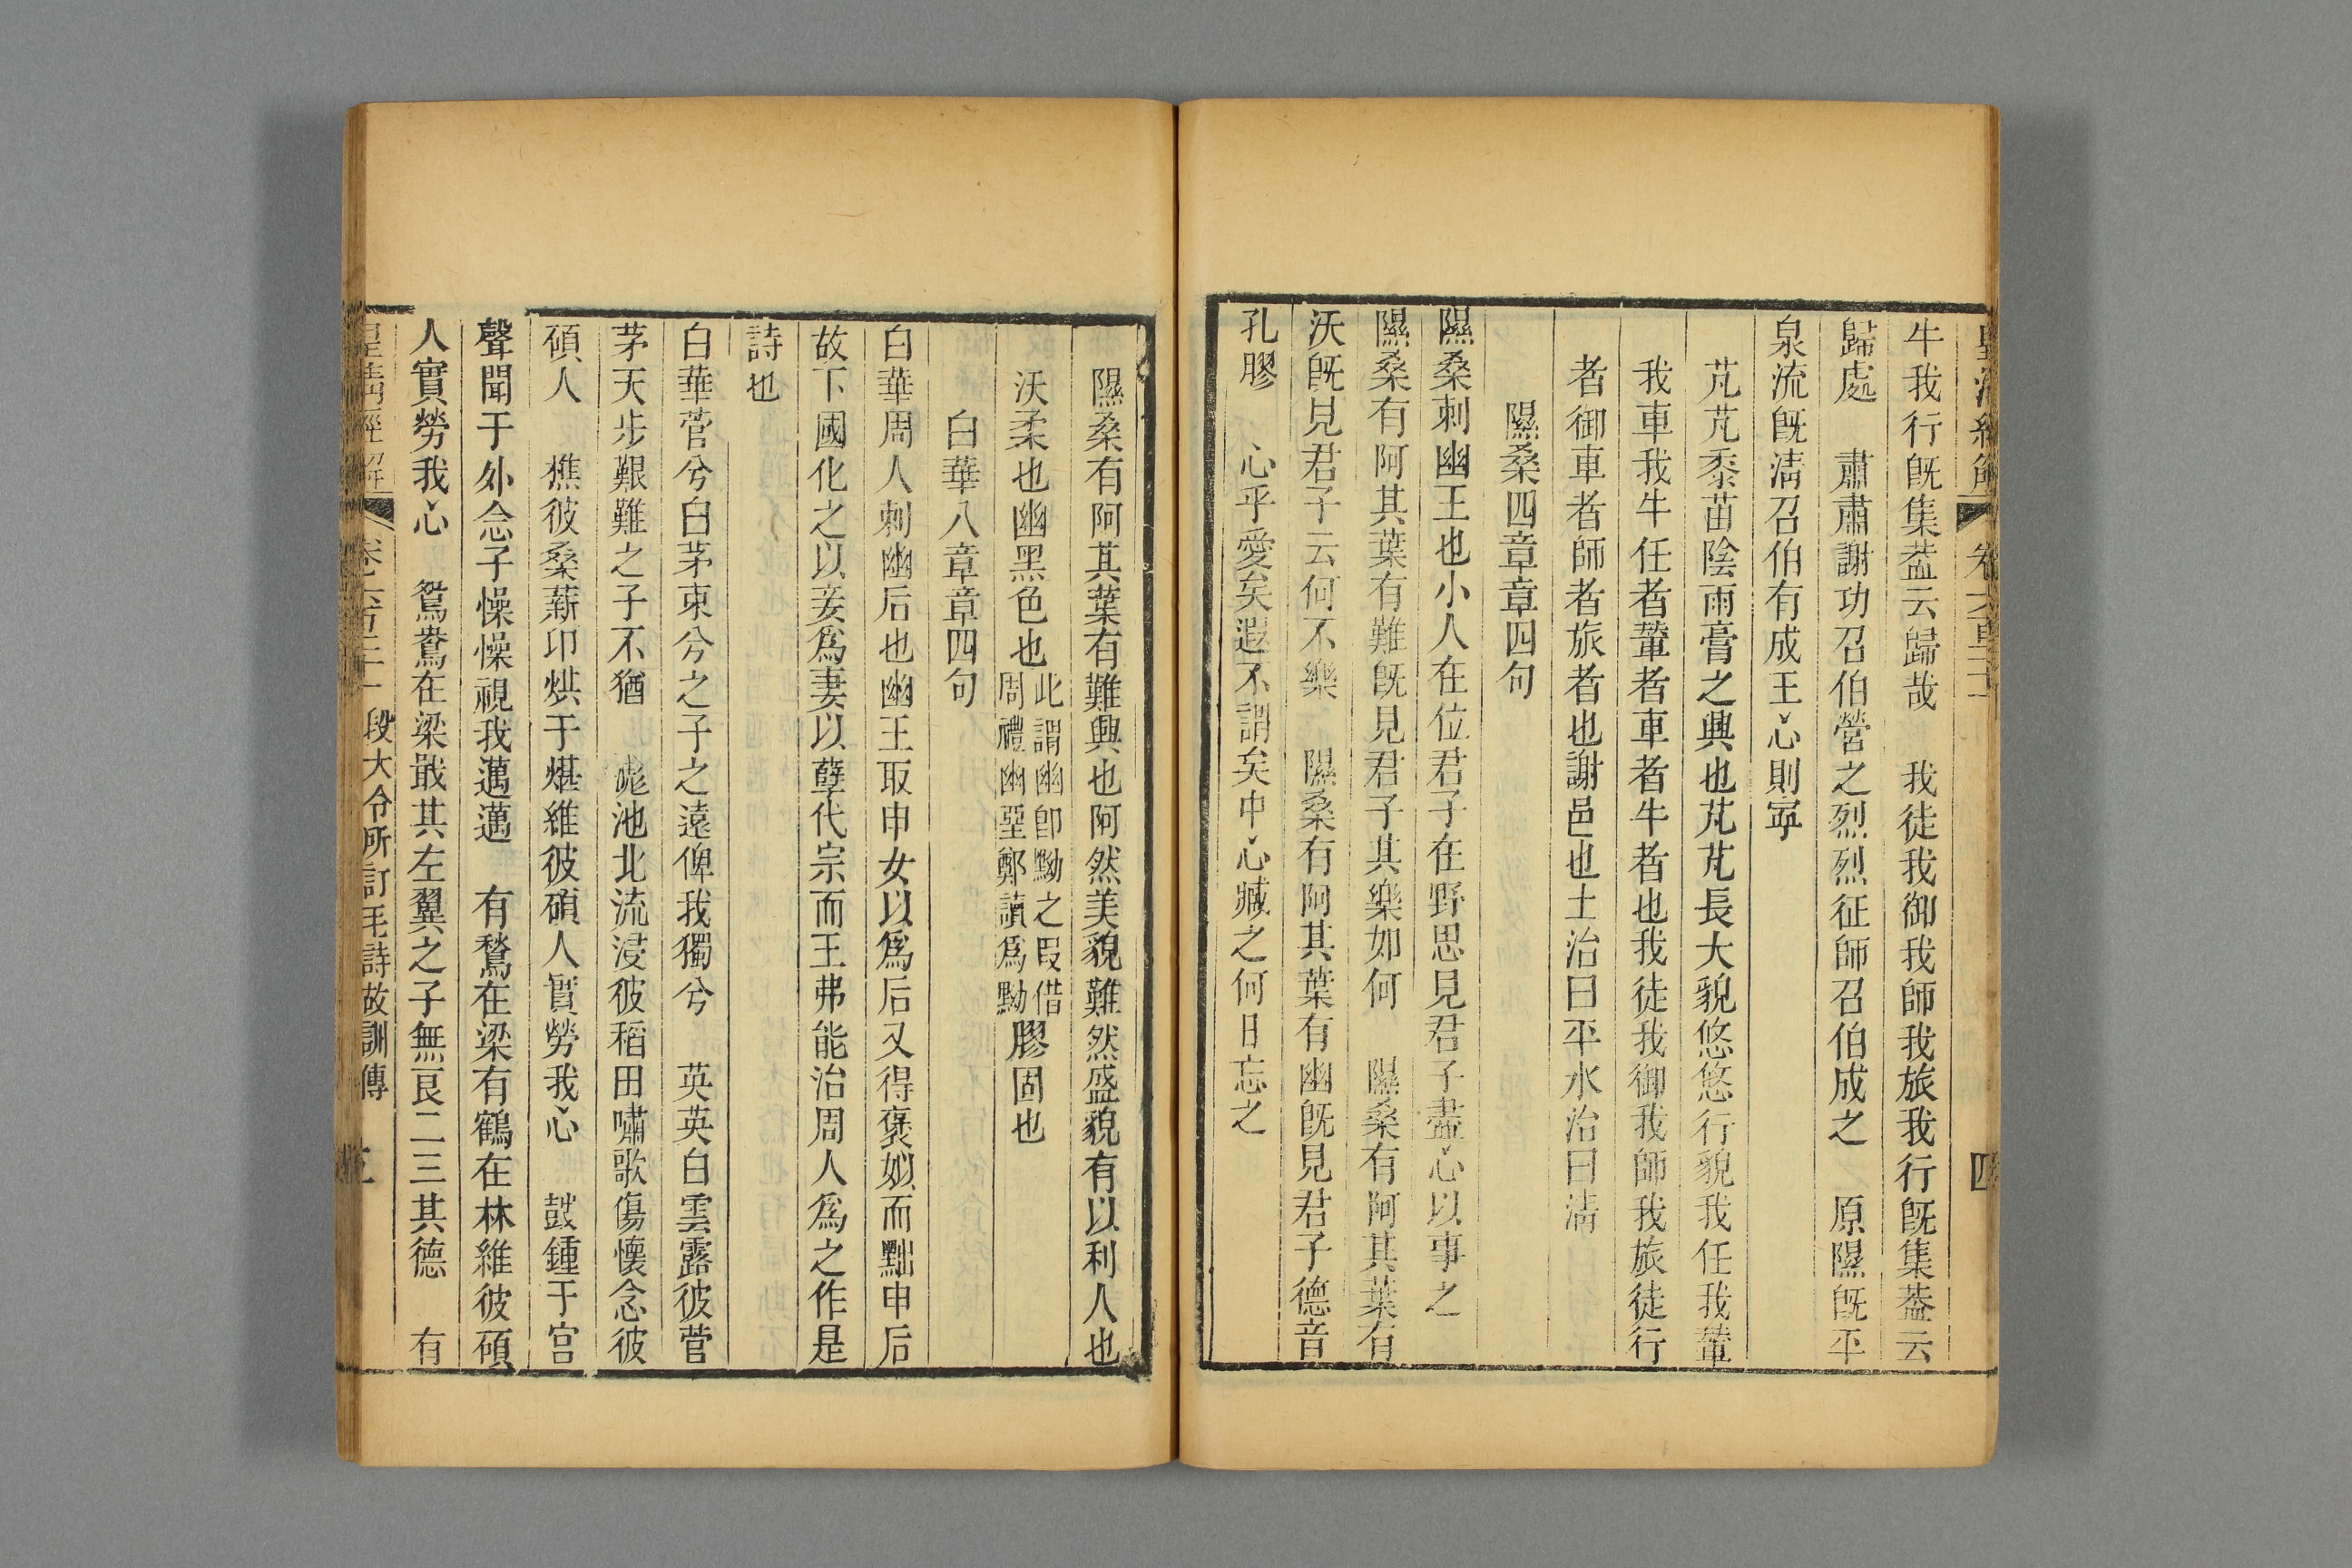 皇淸經解 卷六百二十一 四
牛我行旣集葢云歸哉　我徒我御我師我旅我行旣集葢云
歸處　肅肅謝功召伯營之烈烈征師召伯成之　原隰旣平
泉流旣淸召伯有成王心則寧
芃芃黍苗陰雨膏之興也芃芃長大貌悠悠行貌我任我輦
我車我牛任者輦者車者牛者也我徒我御我師我旅徒行
者御車者師者旅者也謝邑也土治曰平水治曰淸
隰桑四章章四句
隰桑刺幽王也小人在位君子在野思見君子盡心以事之
隰桑有阿其葉有難旣見君子其樂如何　隰桑有阿其葉有
沃旣見君子云何不樂　隰桑有阿其葉有幽旣見君子德音
孔膠　心乎愛矣遐不謂矣中心臧之何日忘之
隰桑有阿其葉有難興也阿然美貌難然盛貌有以利人也
沃柔也幽黑色也
此謂幽卽黝之叚借
周禮幽堊鄭讀爲黝
膠固也
白華八章章四句
白華周人刺幽后也幽王取申女以爲后又得褒姒而黜申后
故下國化之以妾爲妻以孽代宗而王弗能治周人爲之作是
詩也
白華菅兮白茅束兮之子之遠俾我獨兮　英英白雲露彼菅
茅天步艱難之子不猶　滮池北流浸彼稻田嘯歌傷懷念彼
碩人　樵彼桑薪卬烘于煁維彼碩人實勞我心　鼓鍾于宮
聲聞于外念子懆懆視我邁邁　有鶖在梁有鶴在林維彼碩
人實勞我心　鴛鴦在梁戢其左翼之子無良二三其德　有
皇淸經解 卷六百二十一 段大令所訂毛詩故訓傳 五